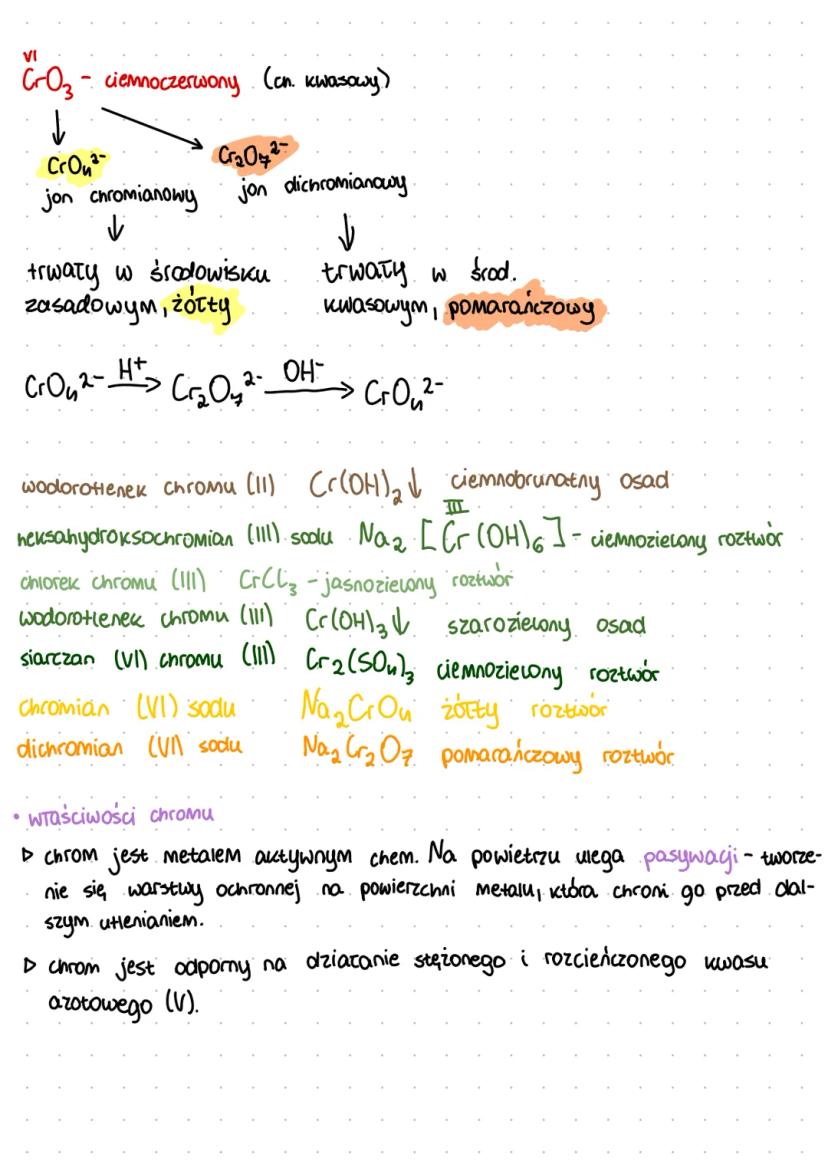 VI
CrO₃ - ciemnoczerwony (ch. kwasowy)
CrO₄²⁻ Cr₂O₇²⁻
jon chromianowy jon dichromianowy
trwały w środowisku trwały w środ.
zasadowym, żółty kwasowym, pomarańczowy
CrO₄²⁻ H⁺→ Cr₂O₇²⁻ OH⁻→ CrO₄²⁻
wodorotlenek chromu (II) Cr(OH)₂↓ ciemnobrunatny osad
III
heksahydroksochromian (III) sodu Na₂ [Cr(OH)₆] - ciemnozielony roztwór
chlorek chromu (III) CrCl₃ - jasnozielony roztwór
wodorotlenek chromu (III) Cr(OH)₃↓ szarozielony osad
siarczan (VI) chromu (III) Cr₂(SO₄)₃ ciemnozielony roztwór
chromian (VI) sodu Na₂CrO₄ żółty roztwór
dichromian (VI) sodu Na₂Cr₂O₇ pomarańczowy roztwór
• właściwości chromu
▷ chrom jest metalem aktywnym chem. Na powietrzu ulega pasywacji - tworze-
nie się warstwy ochronnej na powierzchni metalu, która chroni go przed dal-
szym utlenianiem.
▷ chrom jest odporny na działanie stężonego i rozcieńczonego kwasu
azotowego (V).